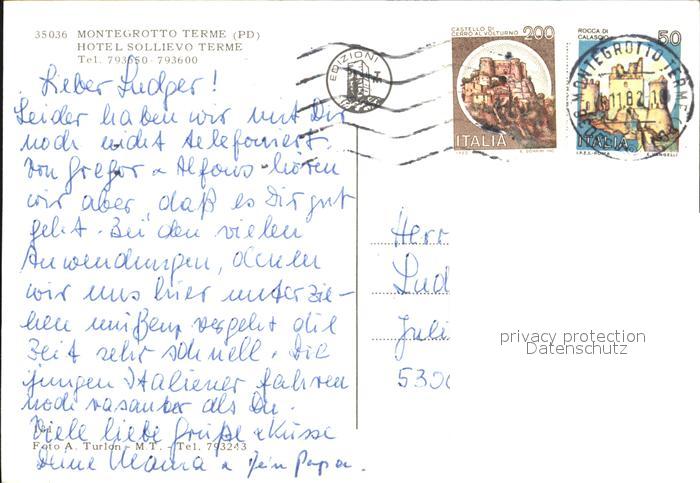 35036 MONTEGROTTO TERME (PD)
HOTEL SOLLIEVO TERME
Tel. 793550 - 793600
EDIZIONI
CASTELLO DI
CERRO AL VOLTURNO
200
ITALIA
ROCCA DI
CALASCIO
50
ITALIA
MONTEGROTTO TERME
11 82
Lieber Ludger!
Leider haben wir mit Dir
noch nicht telefoniert.
Von Gregor u Alfons hören
wir aber, daß es Dir gut
geht. Bei den vielen
Anwendungen, denen
wir uns hier unterzie-
hen müßen, vergeht die
Zeit sehr schnell. Die
jungen Italiener fahren
noch rasanter als Du.
Viele liebe Grüße u Küsse
Deine Mama u Dein Papa.
Foto A. Turlon - M.T. - Tel. 793243
Herr
Lud
Juli
530
privacy protection
Datenschutz